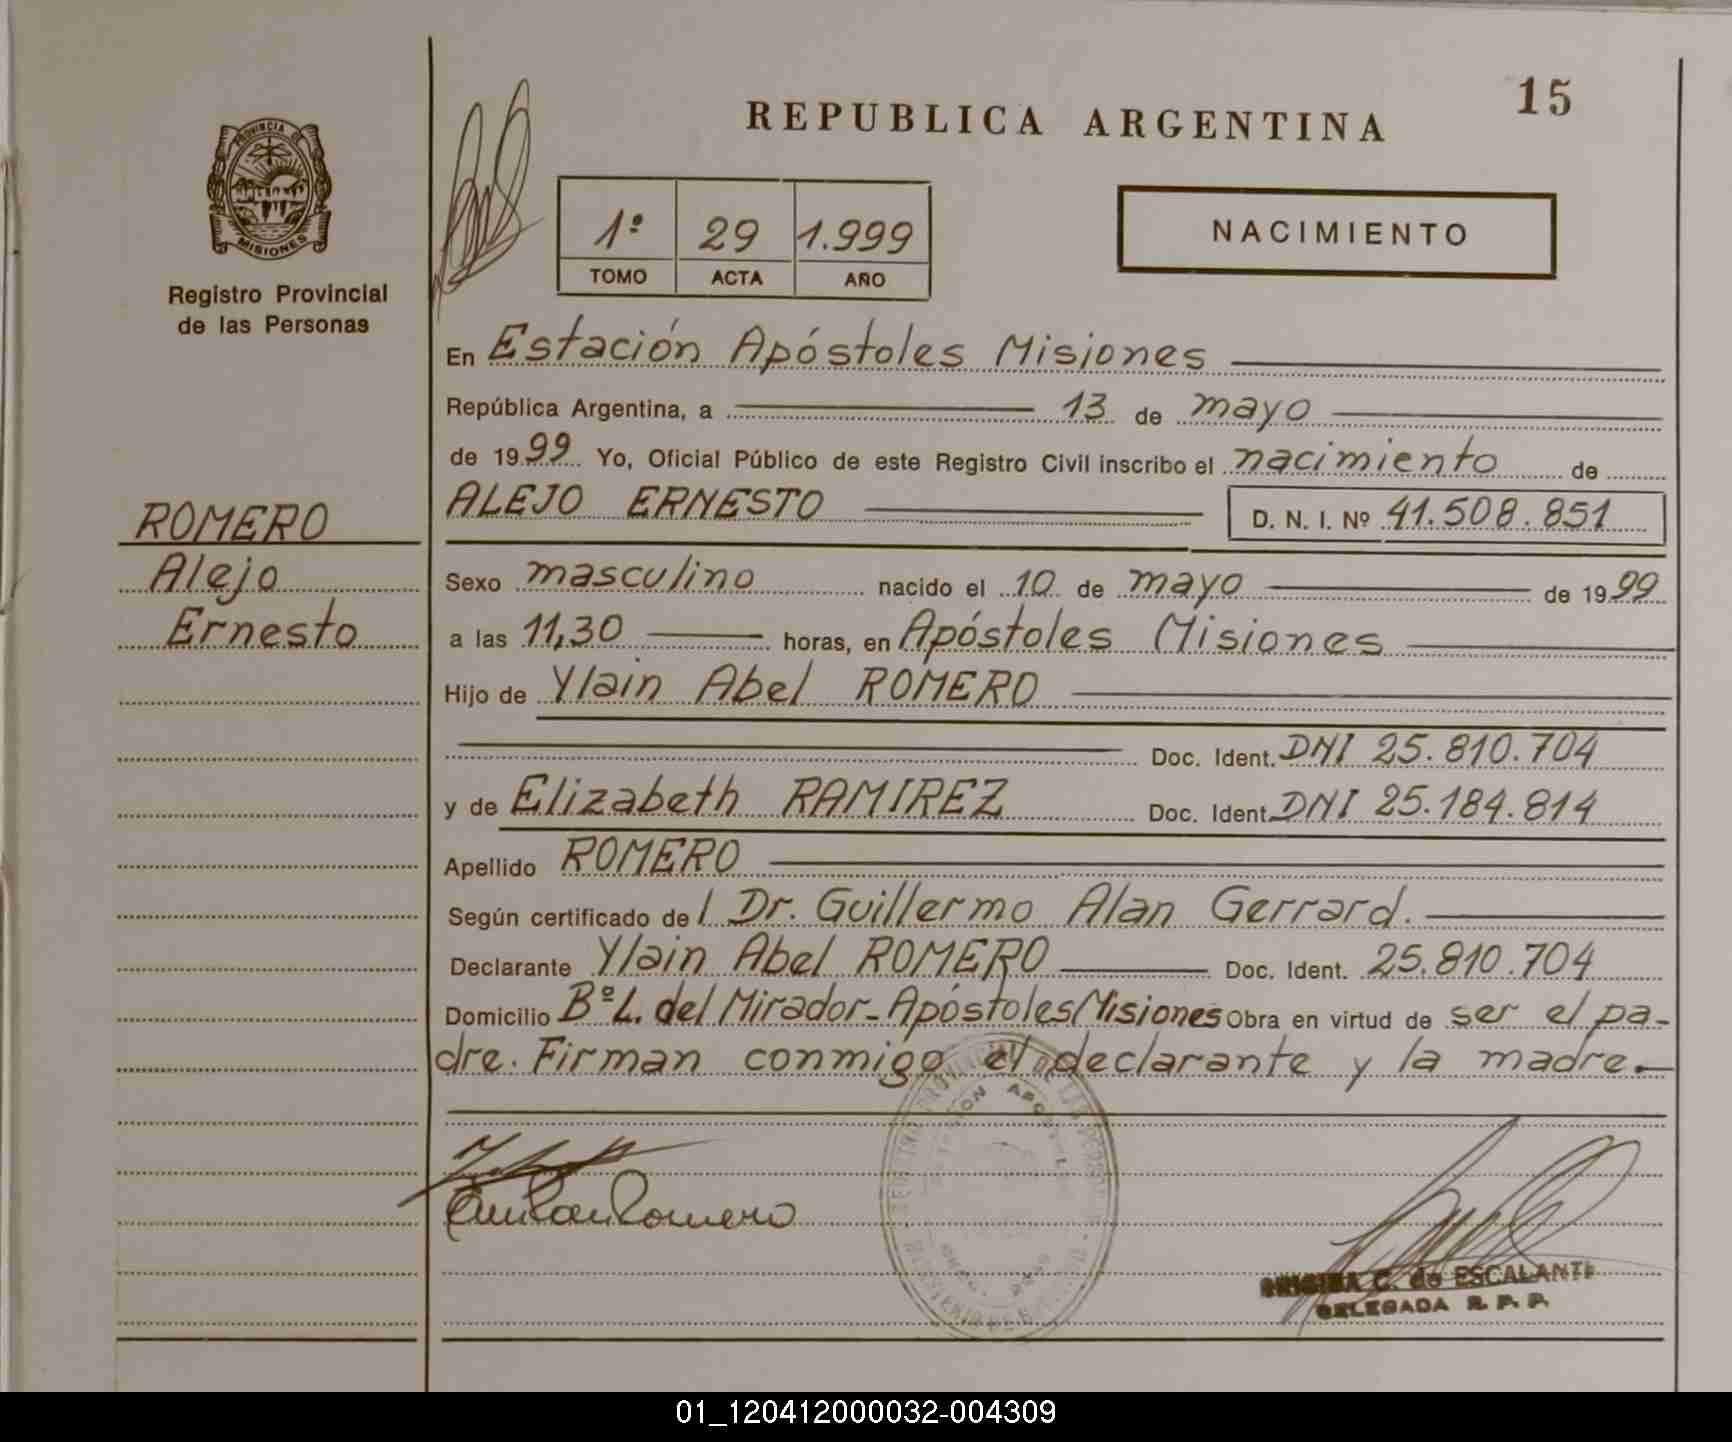 15
REPUBLICA ARGENTINA
PROVINCIA DE
MISIONES
Registro Provincial
de las Personas
1º 29 1.999
TOMO ACTA AÑO
NACIMIENTO
En Estación Apóstoles Misiones
República Argentina, a 13 de mayo
de 1999 Yo, Oficial Público de este Registro Civil inscribo el nacimiento de
ROMERO
Alejo
Ernesto
ALEJO ERNESTO D. N. I. Nº 41.508.851
Sexo masculino nacido el 10 de mayo de 1999
a las 11,30 horas, en Apóstoles Misiones
Hijo de Ylain Abel ROMERO
Doc. Ident. DNI 25.810.704
y de Elizabeth RAMIREZ Doc. Ident. DNI 25.184.814
Apellido ROMERO
Según certificado de l Dr. Guillermo Alan Gerrard.
Declarante Ylain Abel ROMERO Doc. Ident. 25.810.704
Domicilio Bº L. del Mirador - Apóstoles Misiones Obra en virtud de ser el pa-
dre. Firman conmigo el declarante y la madre.
Romero
C. de ESCALANTE
DELEGADA R. P. P.
01_120412000032-004309